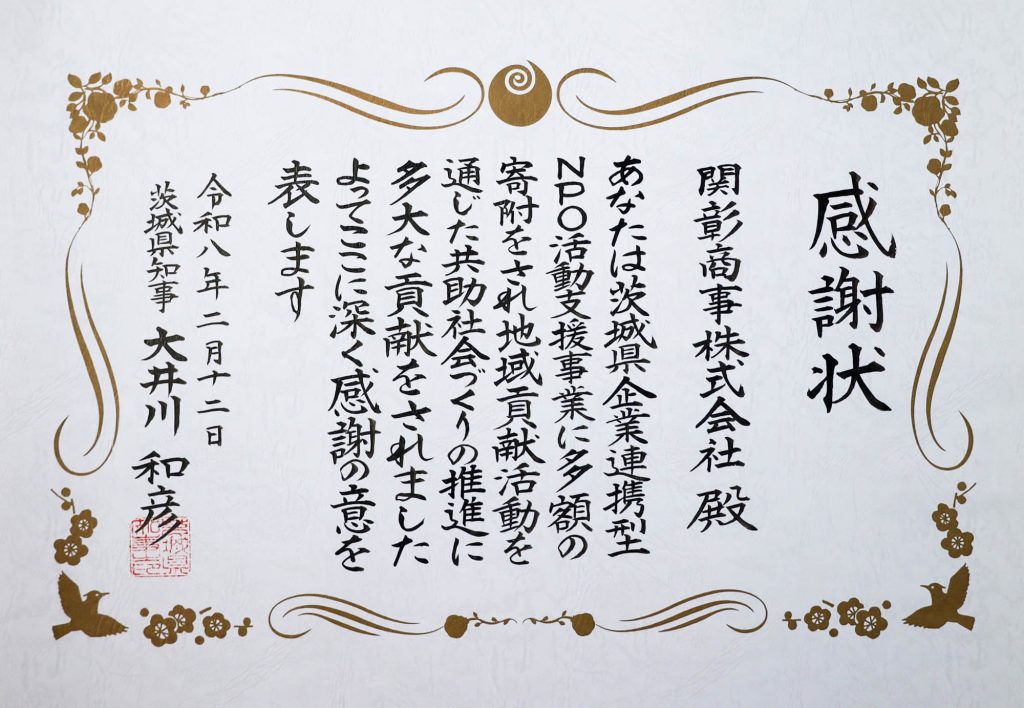 感謝状
関彰商事株式会社 殿
あなたは茨城県企業連携型
NPO活動支援事業に多額の
寄附をされ地域貢献活動を
通じた共助社会づくりの推進に
多大な貢献をされました
よってここに深く感謝の意を
表します
令和八年二月十二日
茨城県知事 大井川 和彦